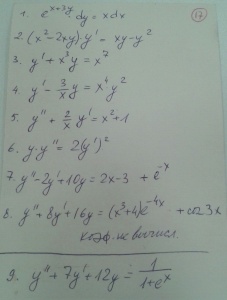 1. e^{x+3y} dy = x dx
17
2. (x² - 2xy)·y' = xy - y²
3. y' + x³y = x⁷
4. y' - 3/x y = x⁴y²
5. y'' + 2/x y' = x² + 1
6. y·y'' = 2(y')²
7. y'' - 2y' + 10y = 2x - 3 + e^{-x}
8. y'' + 8y' + 16y = (x³ + 4)e^{-4x} + cos 3x
коэф. не вычисл.
9. y'' + 7y' + 12y = 1/(1 + e^x)